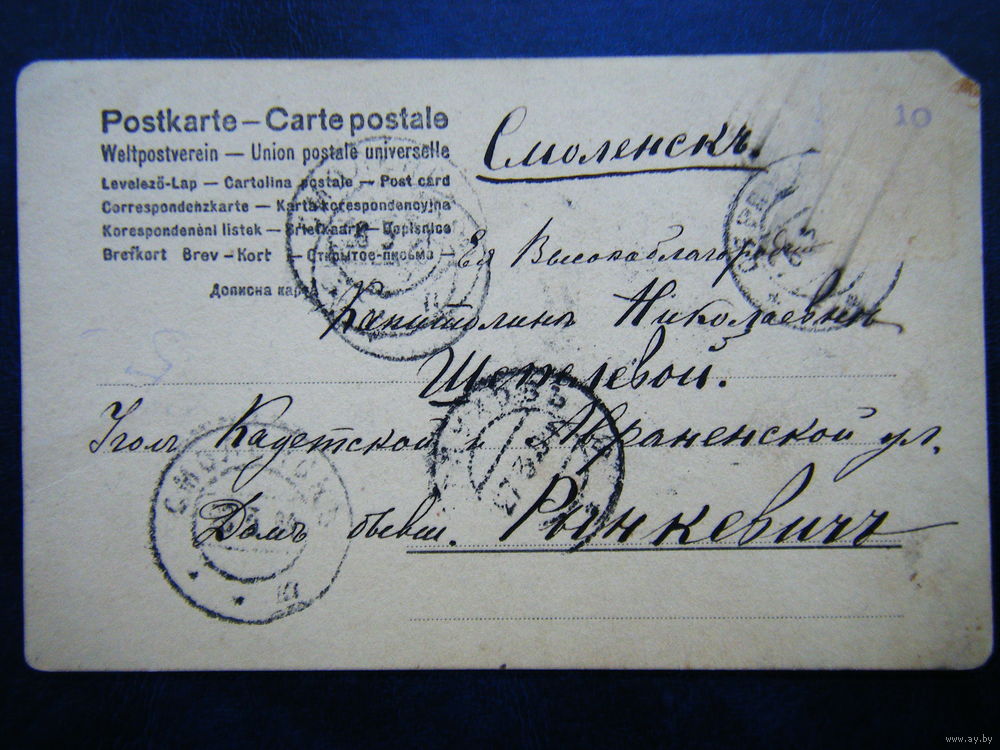 Postkarte – Carte postale
Weltpostverein — Union postale universelle
Levelező-Lap — Cartolina postale — Post card
Correspondenzkarte — Karta korespondencyjna
Korespondenční listek — Briefkaart — Dopisnice
Brefkort Brev-Kort — Открытое письмо —
Дописна
10
Смоленскъ.
Ея Высокоблагородію
Капитолинѣ Николаевнѣ
Щепелевой.
Уголъ Кадетской и ул.
Домъ бывш. Рынкевичъ
СМОЛЕНСКЪ
www.ay.by